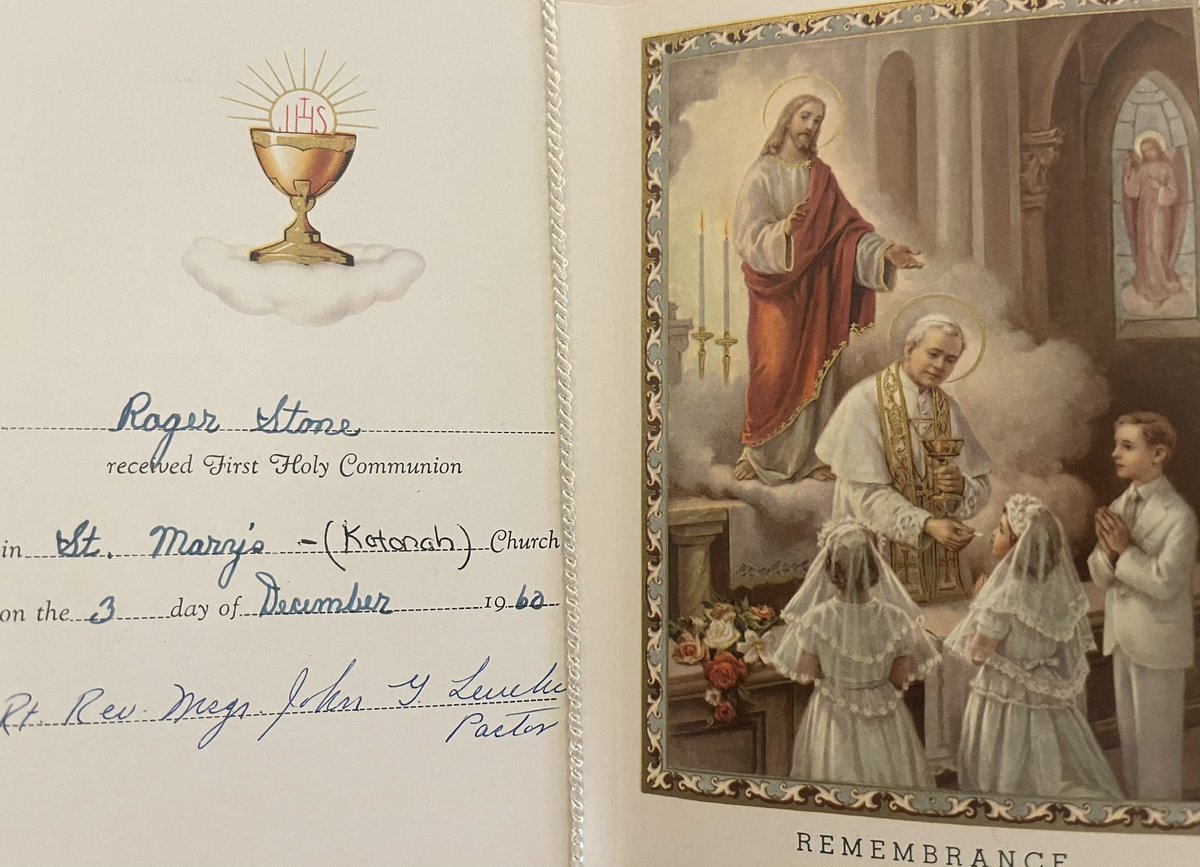 IHS
Roger Stone
received First Holy Communion
in St. Mary's - (Katonah) Church
on the 3 day of December 1960
Rt. Rev. Msgr. John Y
Pastor
REMEMBRANCE